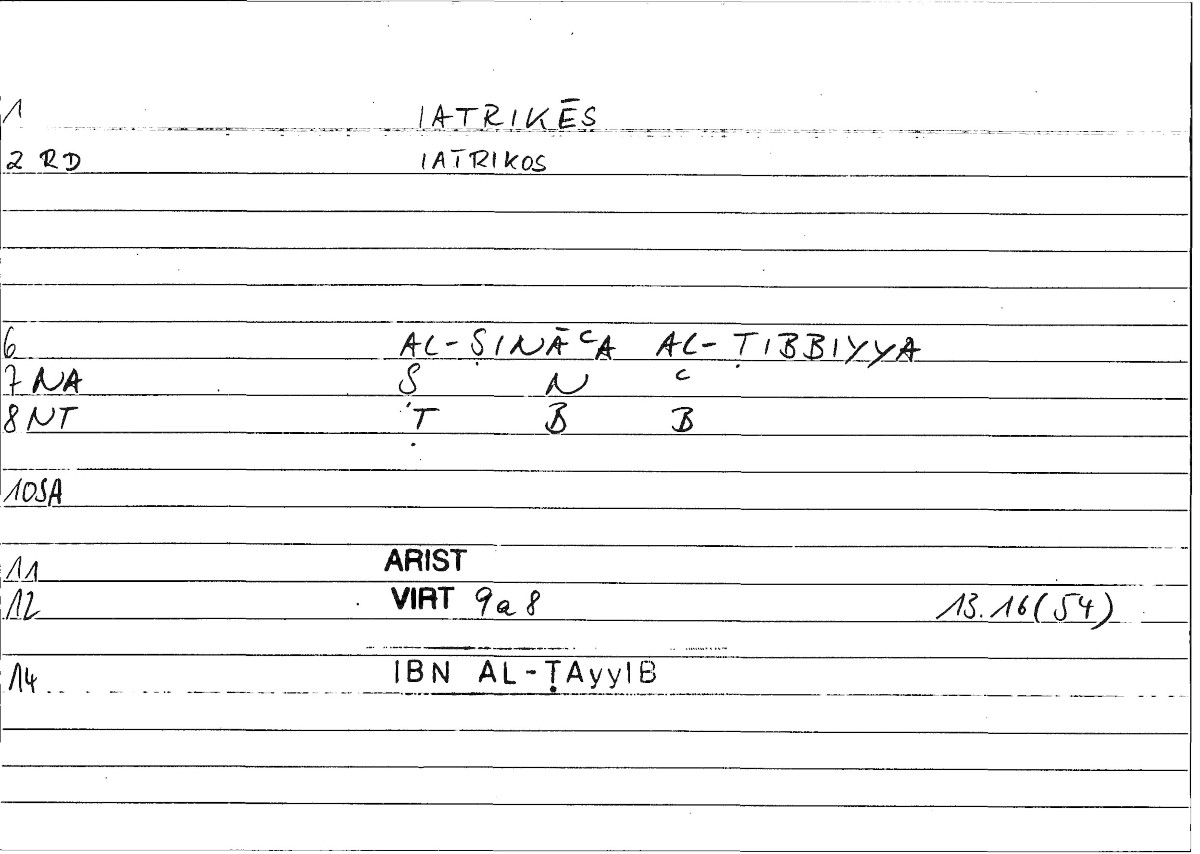 1 IATRIKĒS
2 RD IATRIKOS
6 AL-ṢINĀᶜA AL-ṬIBBIYYA
7 NA Ṣ N ᶜ
8 NT Ṭ B B
10SA
11 ARIST
12 VIRT 9a8 13.16(54)
14 IBN AL-ṬAyyIB